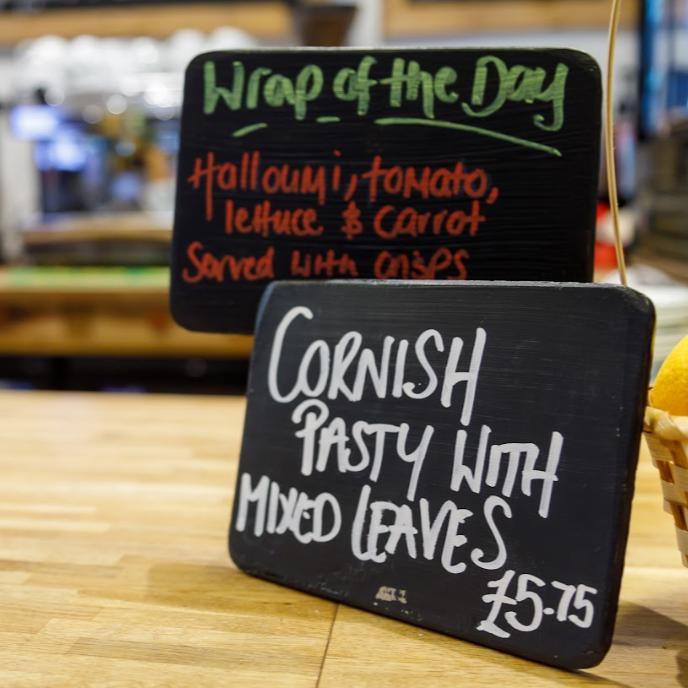 Wrap of the Day
Halloumi, tomato,
lettuce & carrot
Served with crisps
CORNISH
PASTY WITH
MIXED LEAVES
£5.75